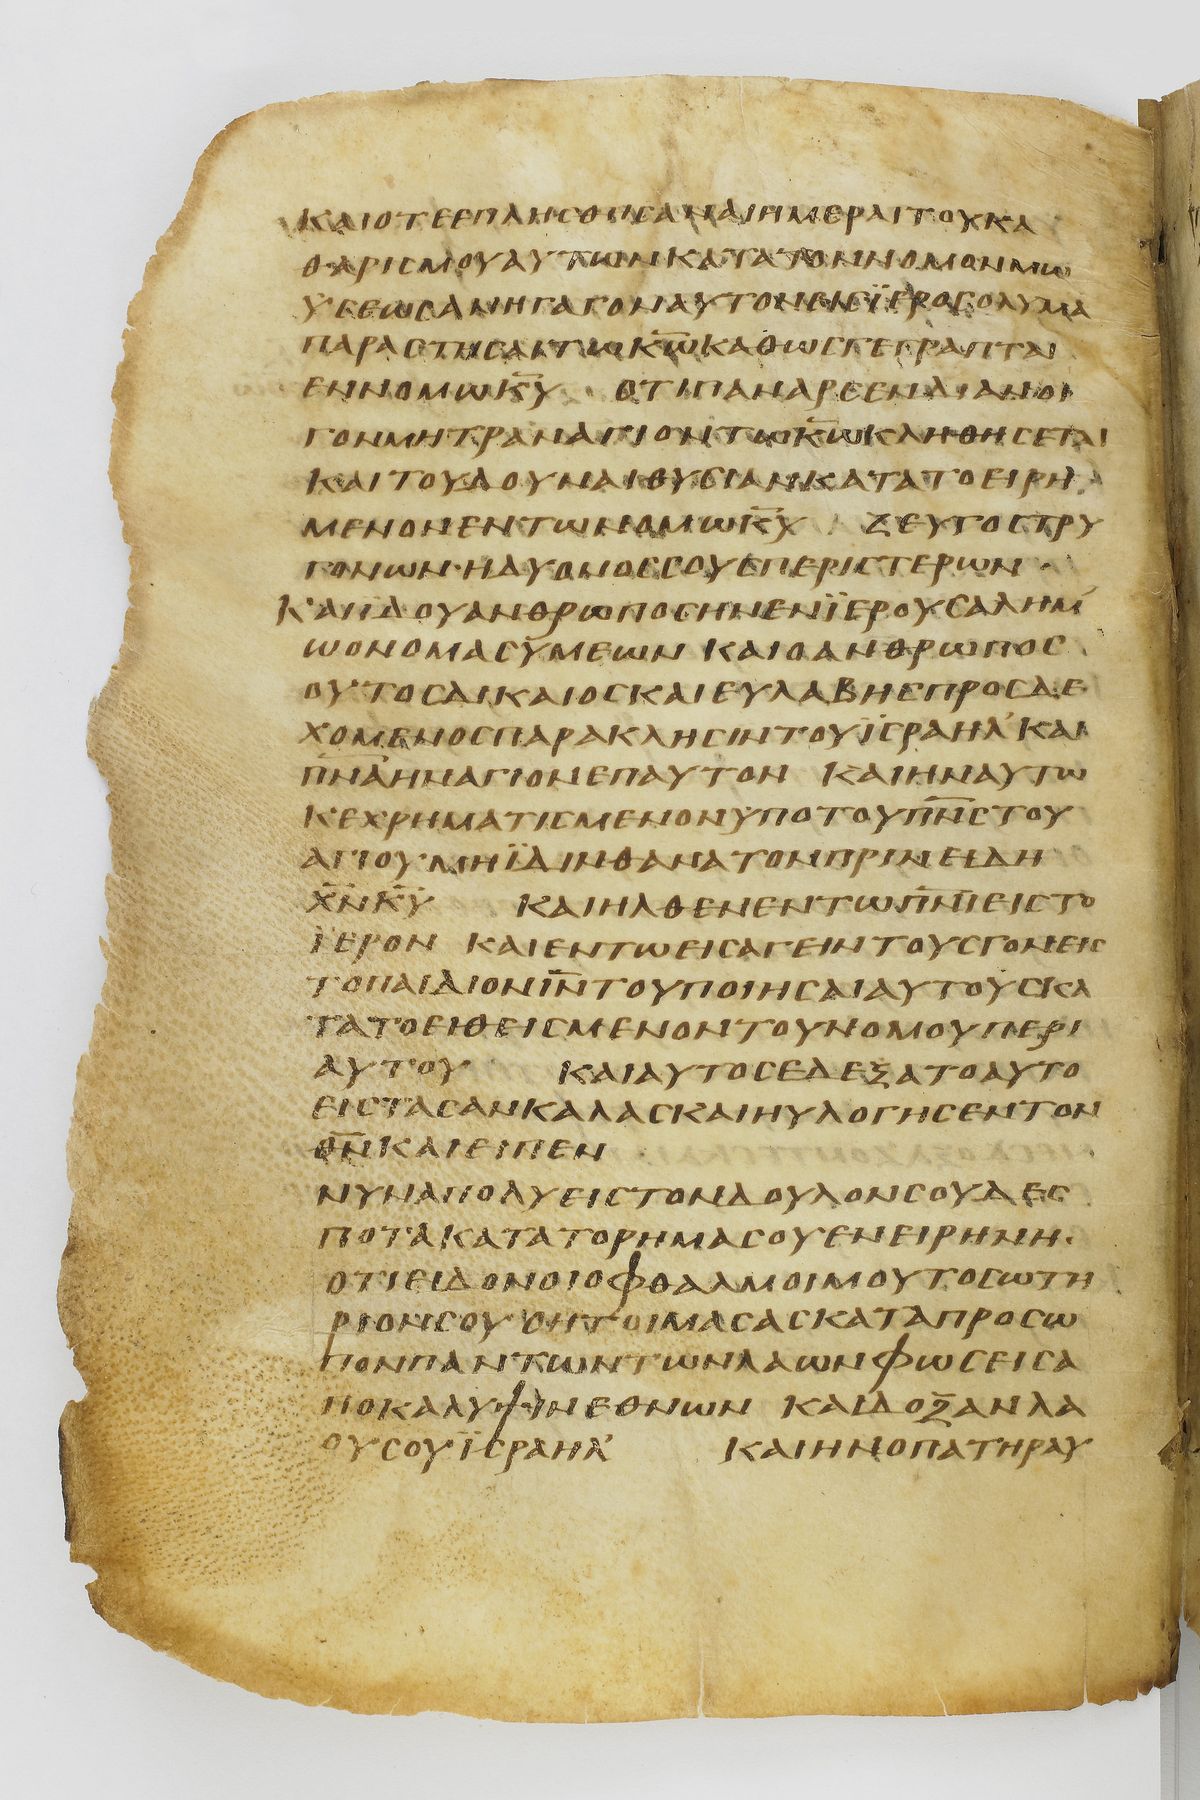 ΚΑΙΟΤΕΕΠΛΗΣΘΗΣΑΝΑΙΗΜΕΡΑΙΤΟΥΚΑ
ΘΑΡΙΣΜΟΥΑΥΤΩΝΚΑΤΑΤΟΝΝΟΜΟΝΜΩ
ΥΣΕΩΣΑΝΗΓΑΓΟΝΑΥΤΟΝΕΙΣΪΕΡΟΣΟΛΥΜΑ
ΠΑΡΑΣΤΗΣΑΙΤΩΚ̅Ω̅ΚΑΘΩΣΓΕΓΡΑΠΤΑΙ
ΕΝΝΟΜΩΚ̅Υ̅ ΟΤΙΠΑΝΑΡΣΕΝΔΙΑΝΟΙ
ΓΟΝΜΗΤΡΑΝΑΓΙΟΝΤΩΚ̅Ω̅ΚΛΗΘΗΣΕΤΑΙ
ΚΑΙΤΟΥΔΟΥΝΑΙΘΥΣΙΑΝΚΑΤΑΤΟΕΙΡΗ
ΜΕΝΟΝΕΝΤΩΝΟΜΩΚ̅Υ̅ ΖΕΥΓΟΣΤΡΥ
ΓΟΝΩΝ·ΗΔΥΟΝΟΣΣΟΥΣΠΕΡΙΣΤΕΡΩΝ
ΚΑΙΙΔΟΥΑΝΘΡΩΠΟΣΗΝΕΝΪΕΡΟΥΣΑΛΗΜ'
ΩΟΝΟΜΑΣΥΜΕΩΝ ΚΑΙΟΑΝΘΡΩΠΟΣ
ΟΥΤΟΣΔΙΚΑΙΟΣΚΑΙΕΥΛΑΒΗΣΠΡΟΣΔΕ
ΧΟΜΕΝΟΣΠΑΡΑΚΛΗΣΙΝΤΟΥΪΣΡΑΗΛ'ΚΑΙ
Π̅Ν̅Α̅ΗΝΑΓΙΟΝΕΠΑΥΤΟΝ ΚΑΙΗΝΑΥΤΩ
ΚΕΧΡΗΜΑΤΙΣΜΕΝΟΝΥΠΟΤΟΥΠ̅Ν̅Σ̅ΤΟΥ
ΑΓΙΟΥ·ΜΗΪΔΙΝΘΑΝΑΤΟΝΠΡΙΝΕΙΔΗ
Χ̅Ν̅Κ̅Υ̅ ΚΑΙΗΛΘΕΝΕΝΤΩΠ̅Ν̅Ι̅ΕΙΣΤΟ
ΪΕΡΟΝ ΚΑΙΕΝΤΩΕΙΣΑΓΕΙΝΤΟΥΣΓΟΝΕΙΣ
ΤΟΠΑΙΔΙΟΝΙ̅Ν̅ΤΟΥΠΟΙΗΣΑΙΑΥΤΟΥΣΚΑ
ΤΑΤΟΕΙΘΕΙΣΜΕΝΟΝΤΟΥΝΟΜΟΥΠΕΡΙ
ΑΥΤΟΥ ΚΑΙΑΥΤΟΣΕΔΕΞΑΤΟΑΥΤΟ
ΕΙΣΤΑΣΑΝΚΑΛΑΣΚΑΙΗΥΛΟΓΗΣΕΝΤΟΝ
Θ̅Ν̅ΚΑΙΕΙΠΕΝ
ΝΥΝΑΠΟΛΥΕΙΣΤΟΝΔΟΥΛΟΝΣΟΥΔΕΣ
ΠΟΤΑΚΑΤΑΤΟΡΗΜΑΣΟΥΕΝΕΙΡΗΝΗ·
ΟΤΙΕΙΔΟΝΟΙΟΦΘΑΛΜΟΙΜΟΥΤΟΣΩΤΗ
ΡΙΟΝΣΟΥΟΗΤΟΙΜΑΣΑΣΚΑΤΑΠΡΟΣΩ
ΠΟΝΠΑΝΤΩΝΤΩΝΛΑΩΝΦΩΣΕΙΣΑ
ΠΟΚΑΛΥΨΙΝΕΘΝΩΝ ΚΑΙΔΟΞΑΝΛΑ
ΟΥΣΟΥΪΣΡΑΗΛ' ΚΑΙΗΝΟΠΑΤΗΡΑΥ